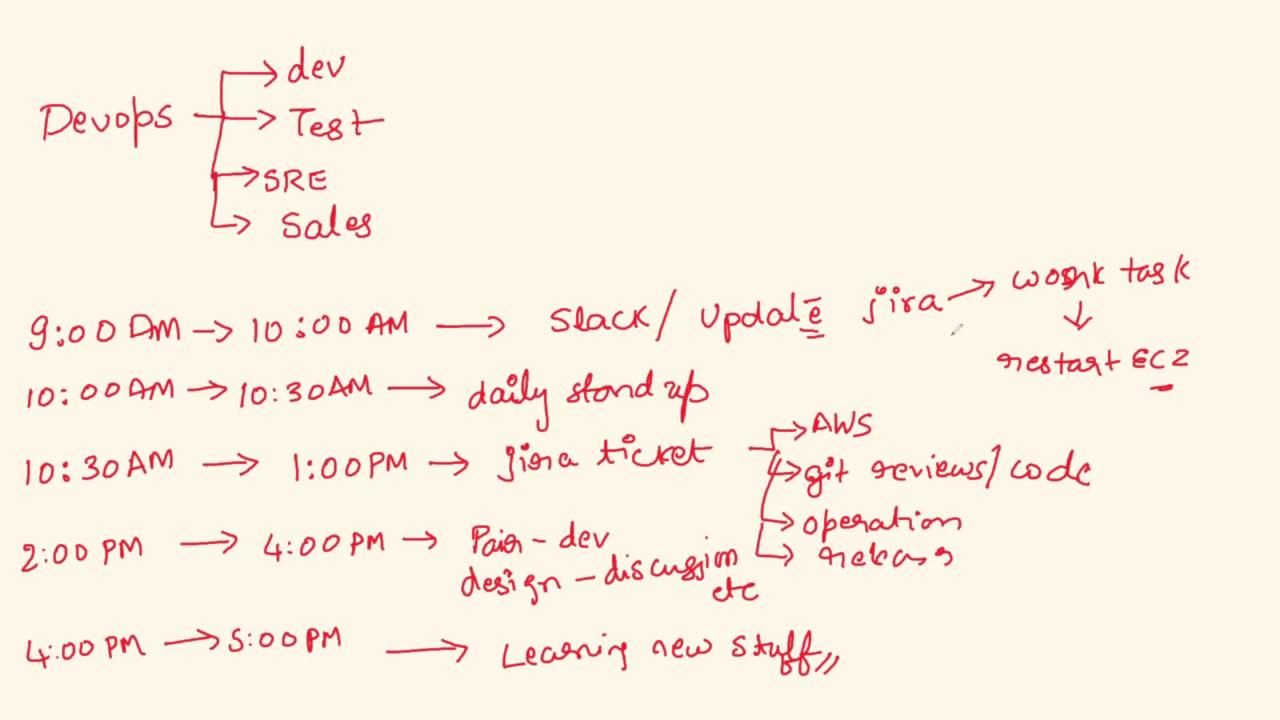 Devops
dev
Test
SRE
Sales
9:00 AM → 10:00 AM → Slack/ update jira → work task
↓
restart EC2
10:00AM → 10:30AM → daily stand up
10:30AM → 1:00PM → jira ticket
→ AWS
→ git reviews/ code
→ operation
→ release
2:00 PM → 4:00PM → Pair - dev
design - discussion
etc
4:00 PM → 5:00PM → Learning new stuff,,